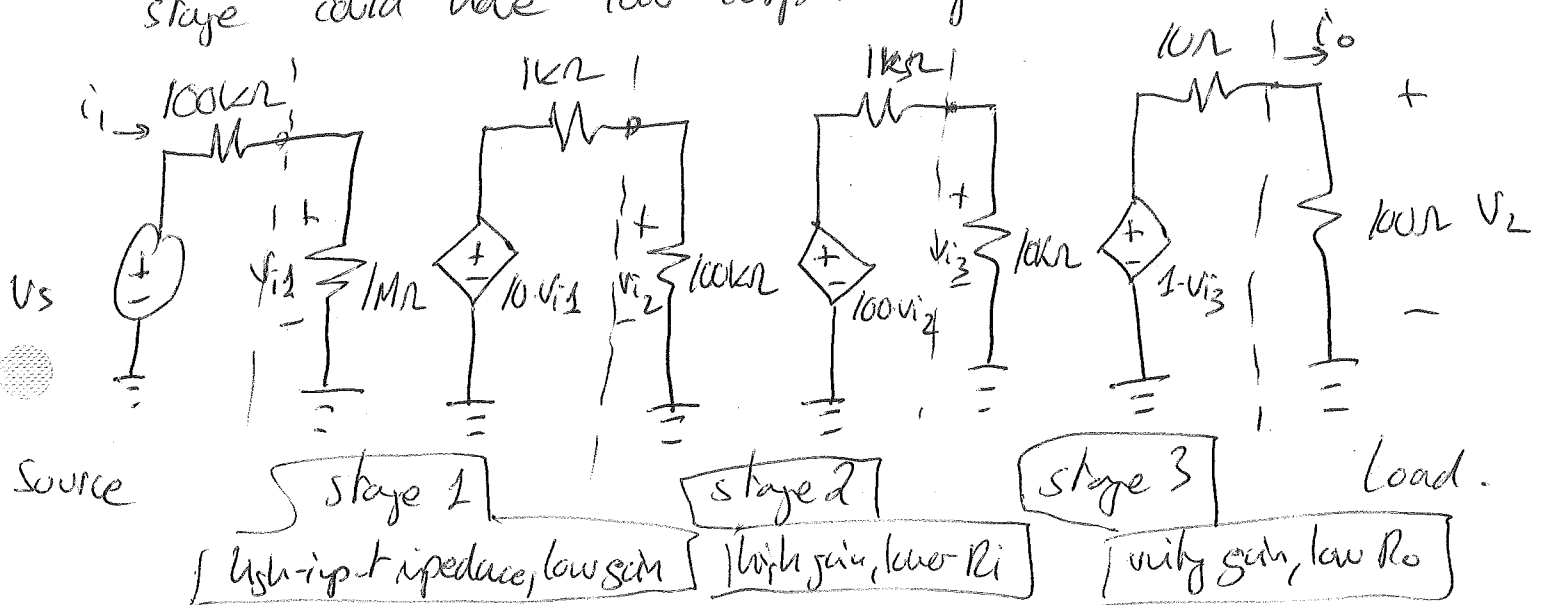 stage could have low
i₁ → 100kΩ
1kΩ
1kΩ
10Ω → i₀
+
Vs
+
-
+
Vi1
-
1MΩ
+
-
10·Vi1
+
Vi2
-
100kΩ
+
-
100·Vi2
+
Vi3
-
10kΩ
+
-
1·Vi3
100Ω V₂
-
Source stage 1 stage 2 stage 3 Load.
high-input ipedace, low gain high gain, lower Ri unity gain, low Ro